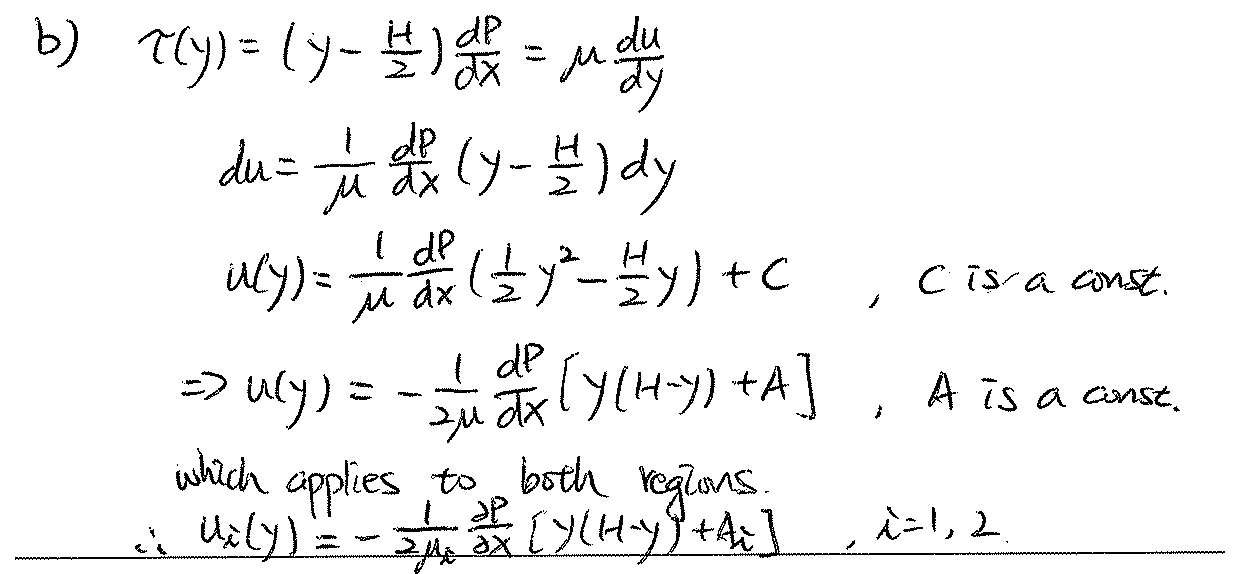 b) τ(y) = (y - H/2) dP/dx = μ du/dy
du = 1/μ dP/dx (y - H/2) dy
u(y) = 1/μ dP/dx (1/2 y² - H/2 y) + C , C is a const.
⇒ u(y) = - 1/2μ dP/dx [y(H-y) + A] , A is a const.
which applies to both regions.
∴ uᵢ(y) = - 1/2μᵢ ∂P/∂x [y(H-y) + Aᵢ] , i=1, 2.